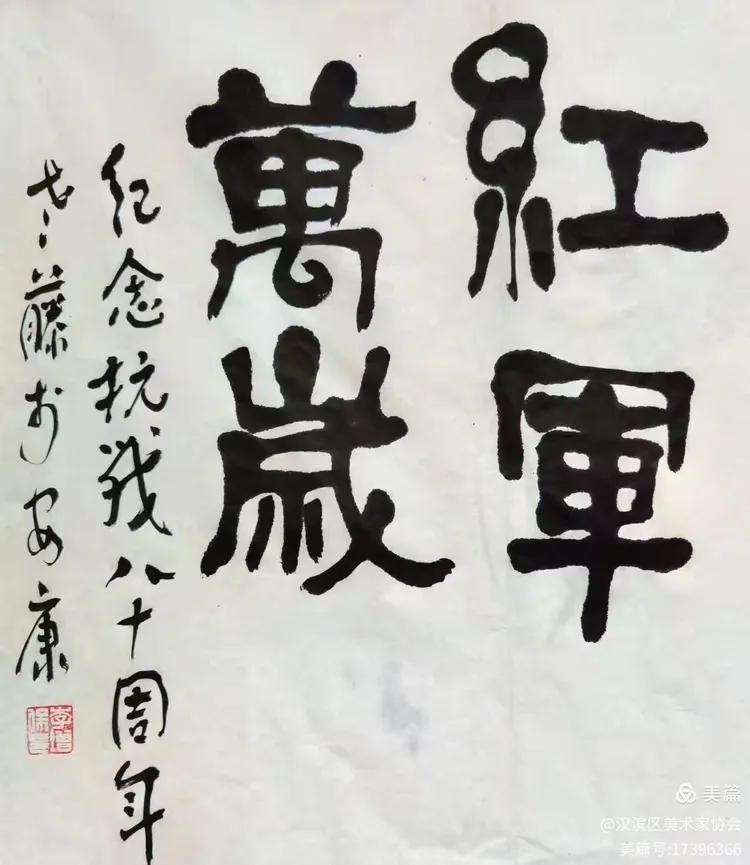 紅軍
萬歲
纪念抗戰八十周年
老藤於安康
美篇
@汉滨区美术家协会
美篇号:17396366